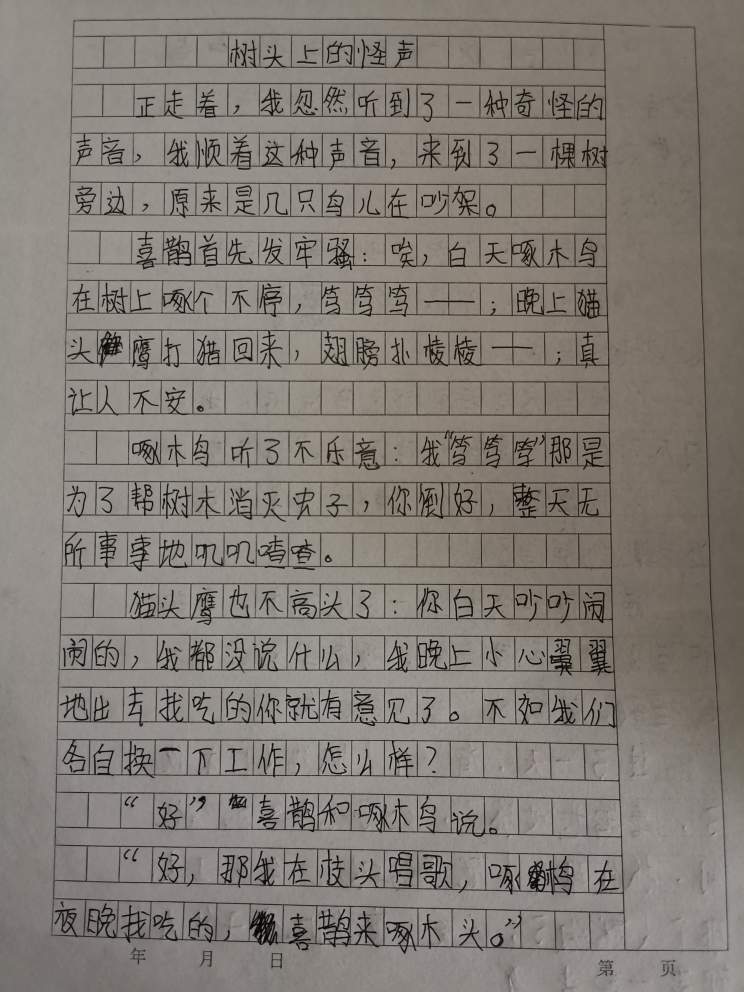 树头上的怪声
正走着，我忽然听到了一种奇怪的
声音，我顺着这种声音，来到了一棵树
旁边，原来是几只鸟儿在吵架。
喜鹊首先发牢骚：唉，白天啄木鸟
在树上啄个不停，笃笃笃——；晚上猫
头鹰打猎回来，翅膀扑棱棱——；真
让人不安。
啄木鸟听了不乐意：我“笃笃笃”那是
为了帮树木消灭虫子，你倒好，整天无
所事事地叽叽喳喳。
猫头鹰也不高头了：你白天吵吵闹
闹的，我都没说什么，我晚上小心翼翼
地出去找吃的你就有意见了。不如我们
各自换一下工作，怎么样？
“好”喜鹊和啄木鸟说。
“好，那我在枝头唱歌，啄鸟在
夜晚找吃的，喜鹊来啄木头。”
年 月 日 第 页